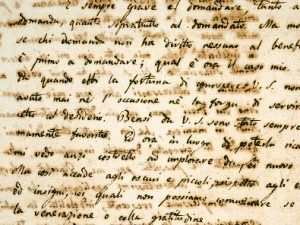 È sempre grave il domandare, tanto a
domanda, quanto sopratutto al domandato. Ma ma
se chi domanda non ha diritto nessuno al benef
è primo a domandare; qual è ora il caso mio
quando ebbi la fortuna di conoscere V. S. non
avute mai nè l'occasione nè la forza di servir
chè al desiderio. Bensì da V. S. sono stato sempre
mamente favorito. Ed ora in luogo di poterla ric
mi vedo anzi costretto ad implorare di nuovo
Ma così accade agli oscuri e piccoli rispetto agli
ed insigni, ai quali non possiamo comunicare se
la venerazione o colla gratitudine